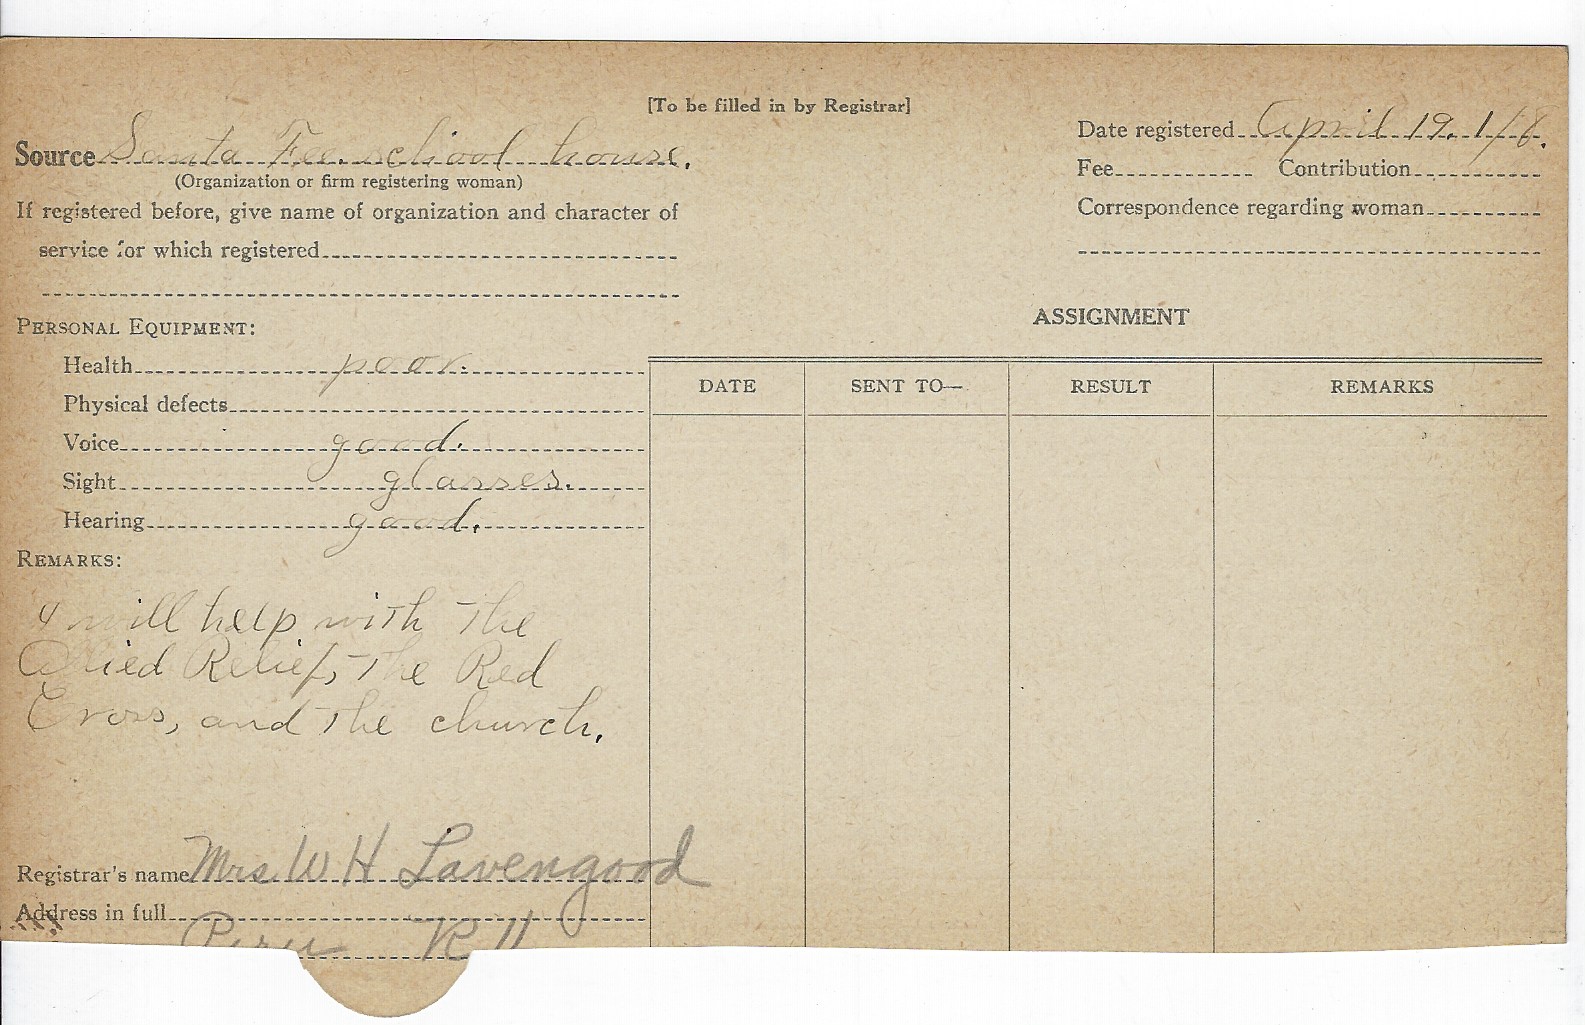 [To be filled in by Registrar]
Source Santa Fee school house.
(Organization or firm registering woman)
If registered before, give name of organization and character of
service for which registered
Date registered April 19. 1/8.
Fee Contribution
Correspondence regarding woman
PERSONAL EQUIPMENT:
Health poor.
Physical defects
Voice good.
Sight glasses.
Hearing good.
REMARKS:
I will help with the
Allied Relief, the Red
Cross, and the church.
ASSIGNMENT
DATE SENT TO— RESULT REMARKS
Registrar's name Mrs. W H Lavengood
Address in full
Peru R